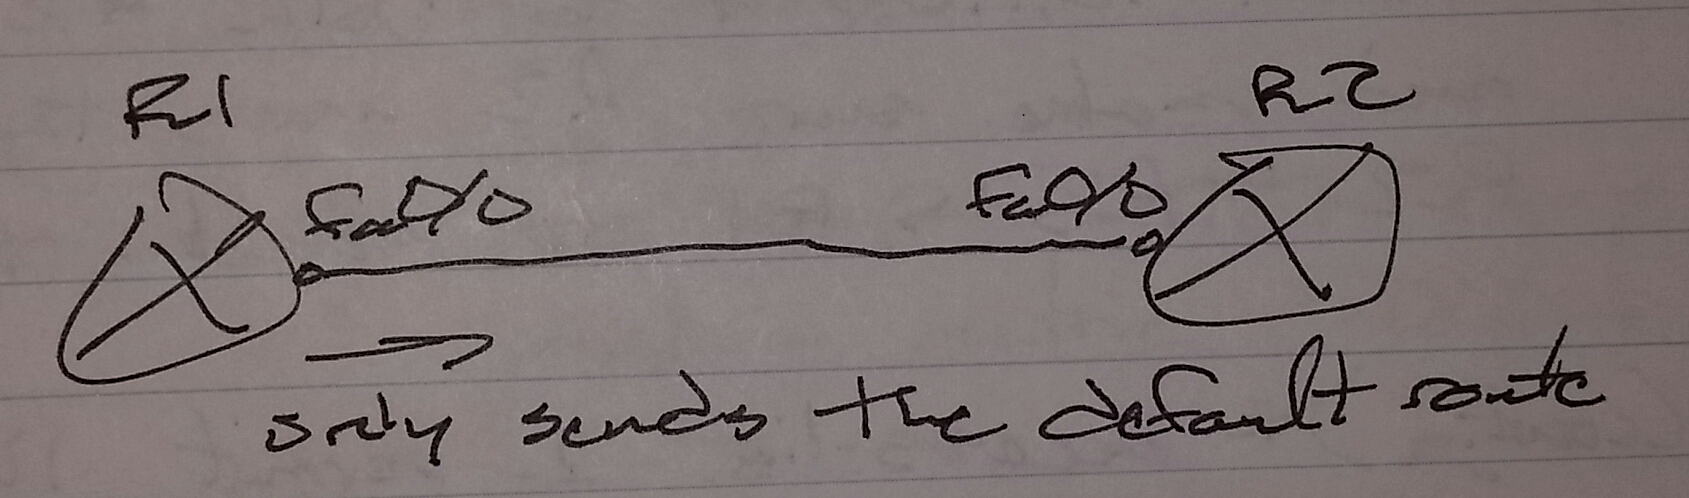 R1
R2
Fa0/0
Fa0/0
only sends the default route